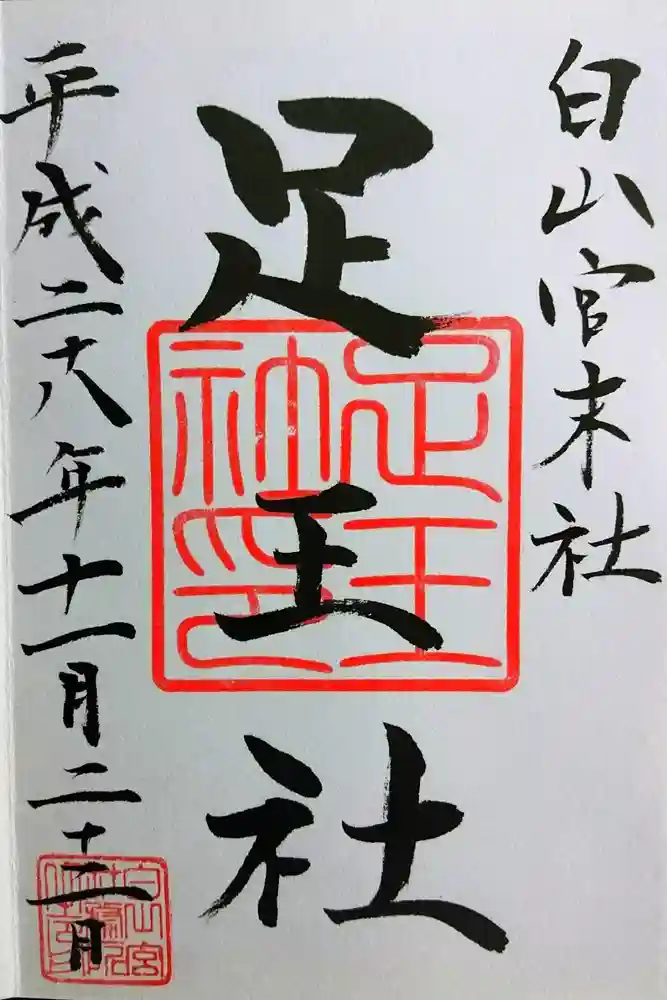 白山宮末社
足王社
足王社印
平成二十八年十一月二十二日
白山宮